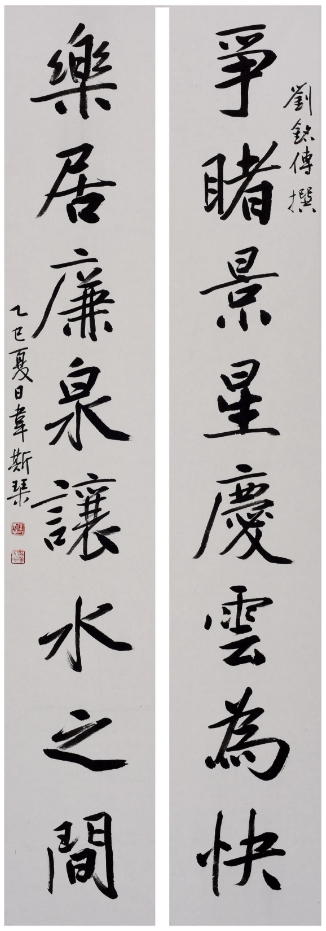 劉銘傳撰
爭睹景星慶雲為快
樂居廉泉讓水之間
乙巳夏日韋斯琴